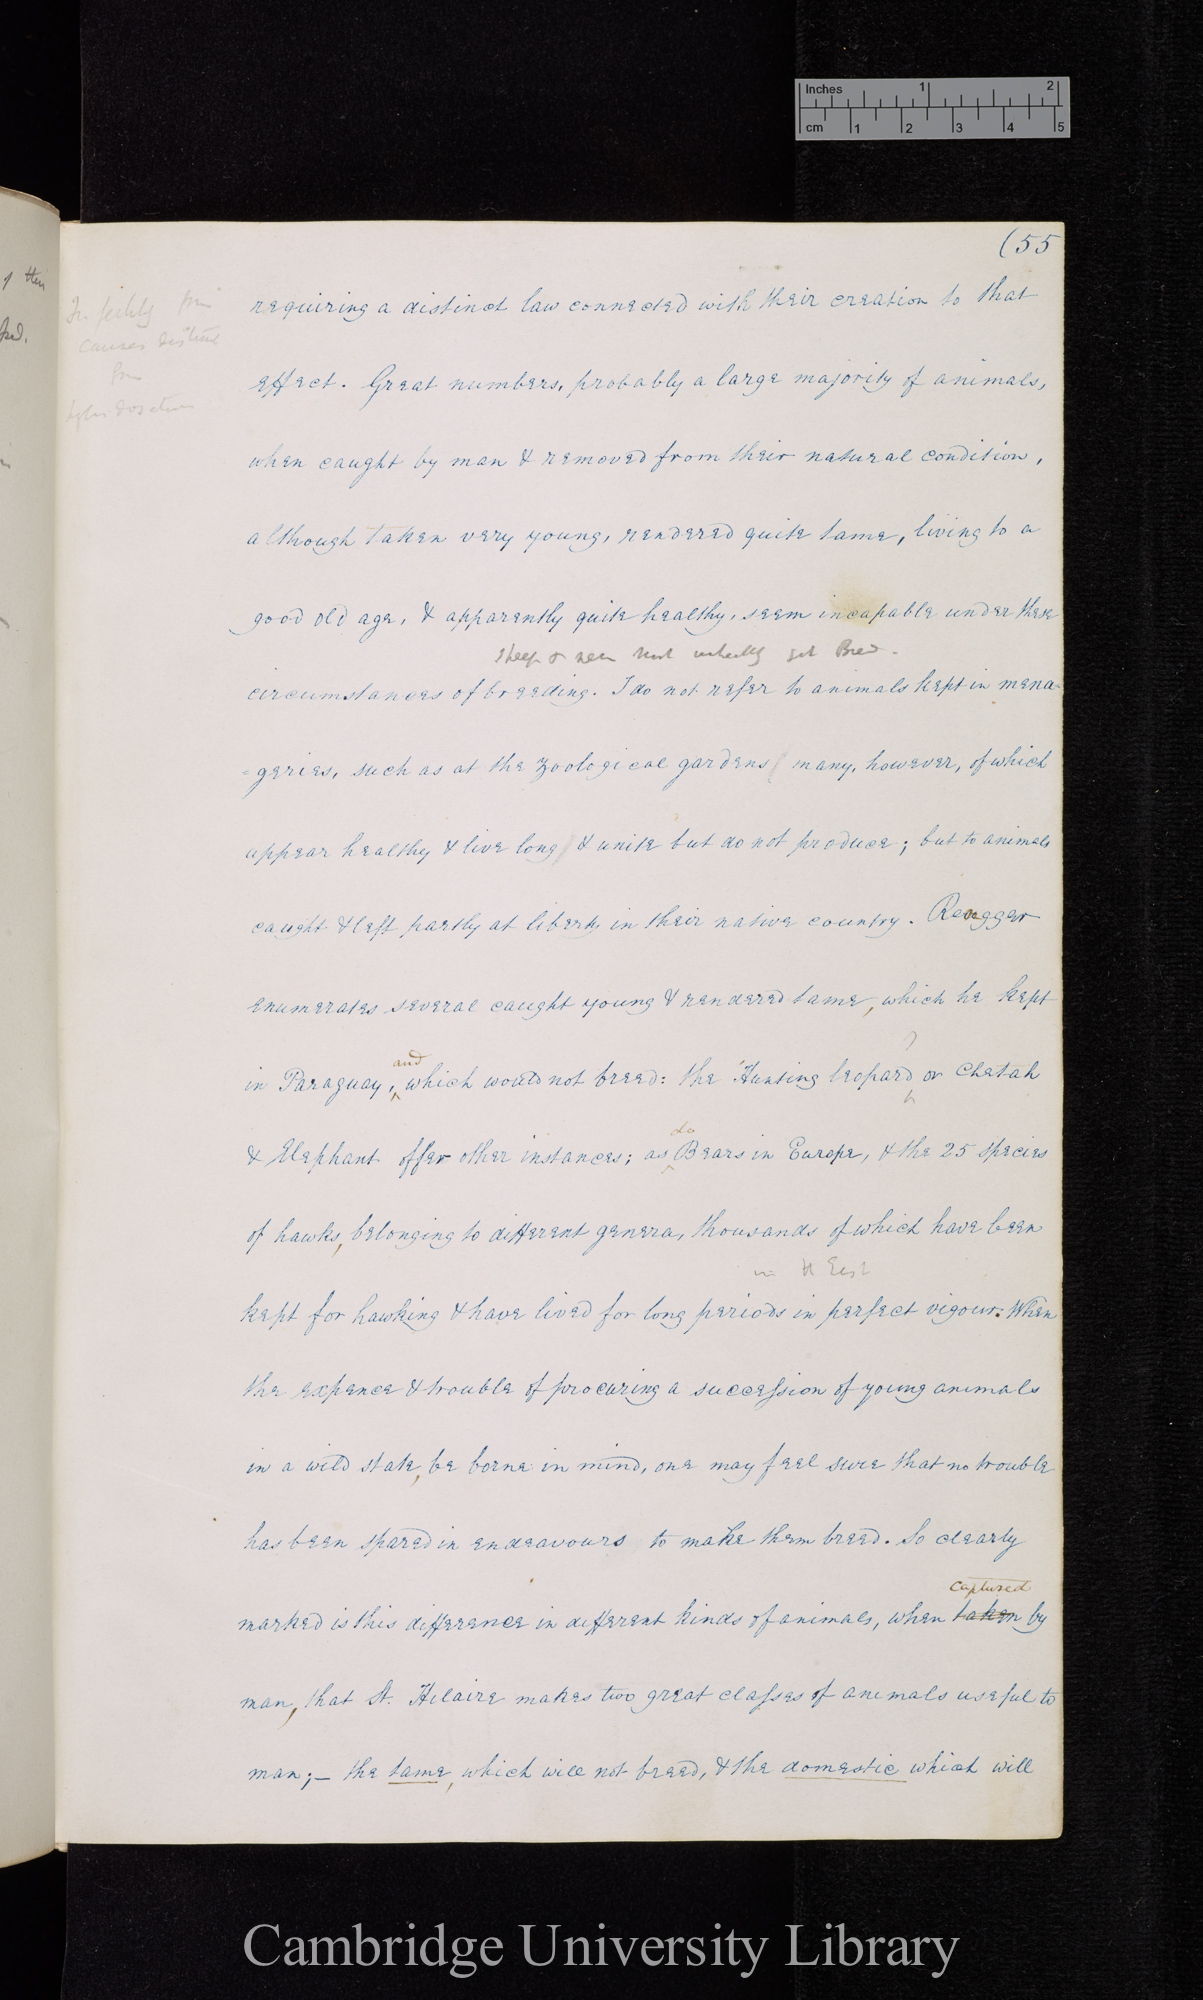 Inches 1 2
cm 1 2 3 4 5
(55
causes
requiring a distinct law connected with their creation to that
effect. Great numbers, probably a large majority of animals,
when caught by man & removed from their natural condition,
although taken very young, rendered quite tame, living to a
good old age, & apparently quite healthy, seem incapable under these
circumstances of breeding. I do not refer to animals kept in mena-
-geries, such as at the Zoological gardens( many, however, of which
appear healthy & live long) & unite but do not produce; but to animals
caught & left partly at liberty in their native country. Rengger
enumerates several caught young & rendered tame, which he kept
and
in Paraguay, which would not breed: the Hunting leopard or Chetah
do
& Elephant offer other instances; as Bears in Europe, & the 25 species
of hawks, belonging to different genera, thousands of which have been
in the East
kept for hawking & have lived for long periods in perfect vigour. When
the expence & trouble of procuring a succession of young animals
in a wild state, be borne in mind, one may feel sure that no trouble
has been spared in endeavours to make them breed. So clearly
captured
marked is this difference in different kinds of animals, when taken by
man, that St. Hilaire makes two great classes of animals useful to
man;— the tame, which will not breed, & the domestic which will
Cambridge University Library